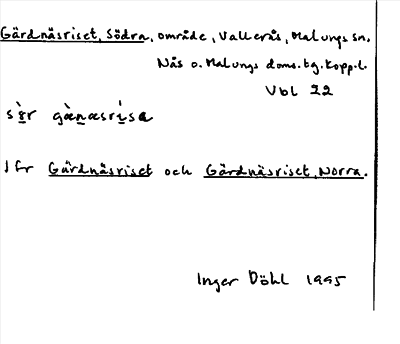 Gärdnäsriset, Södra, område, Vallerås, Malungs sn.
Nås o. Malungs doms. tg. Kopp. l.
Vbl 22
sör gànæsrìsa
Jfr Gärdnäsriset och Gärdnäsriset, Norra.
Inger Döhl 1995